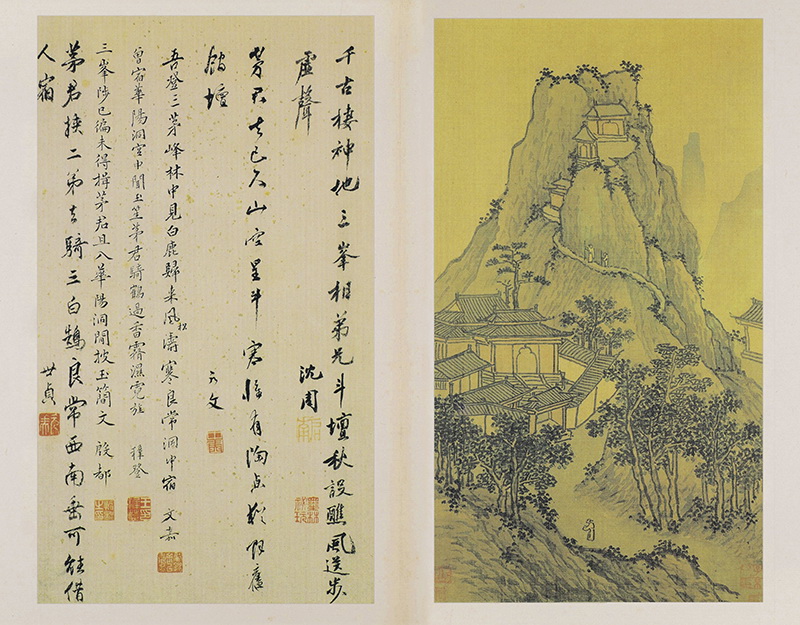 千古棲神地三峯相弟兄斗壇秋設醮風送步
虛聲 沈周
茅君去已久山空星斗寒
館壇
吾登三茅峰林中見白鹿歸來風松濤寒良常洞中宿 文嘉
曾宿華陽洞空中聞玉笙茅君騎鶴過香霧濕霓旌 穉登
三峯陟已徧未得揖茅君且入華陽洞閒披玉簡文 殷都
茅君挾二弟各騎三白鵠良常西南垂可能借
人宿 世貞